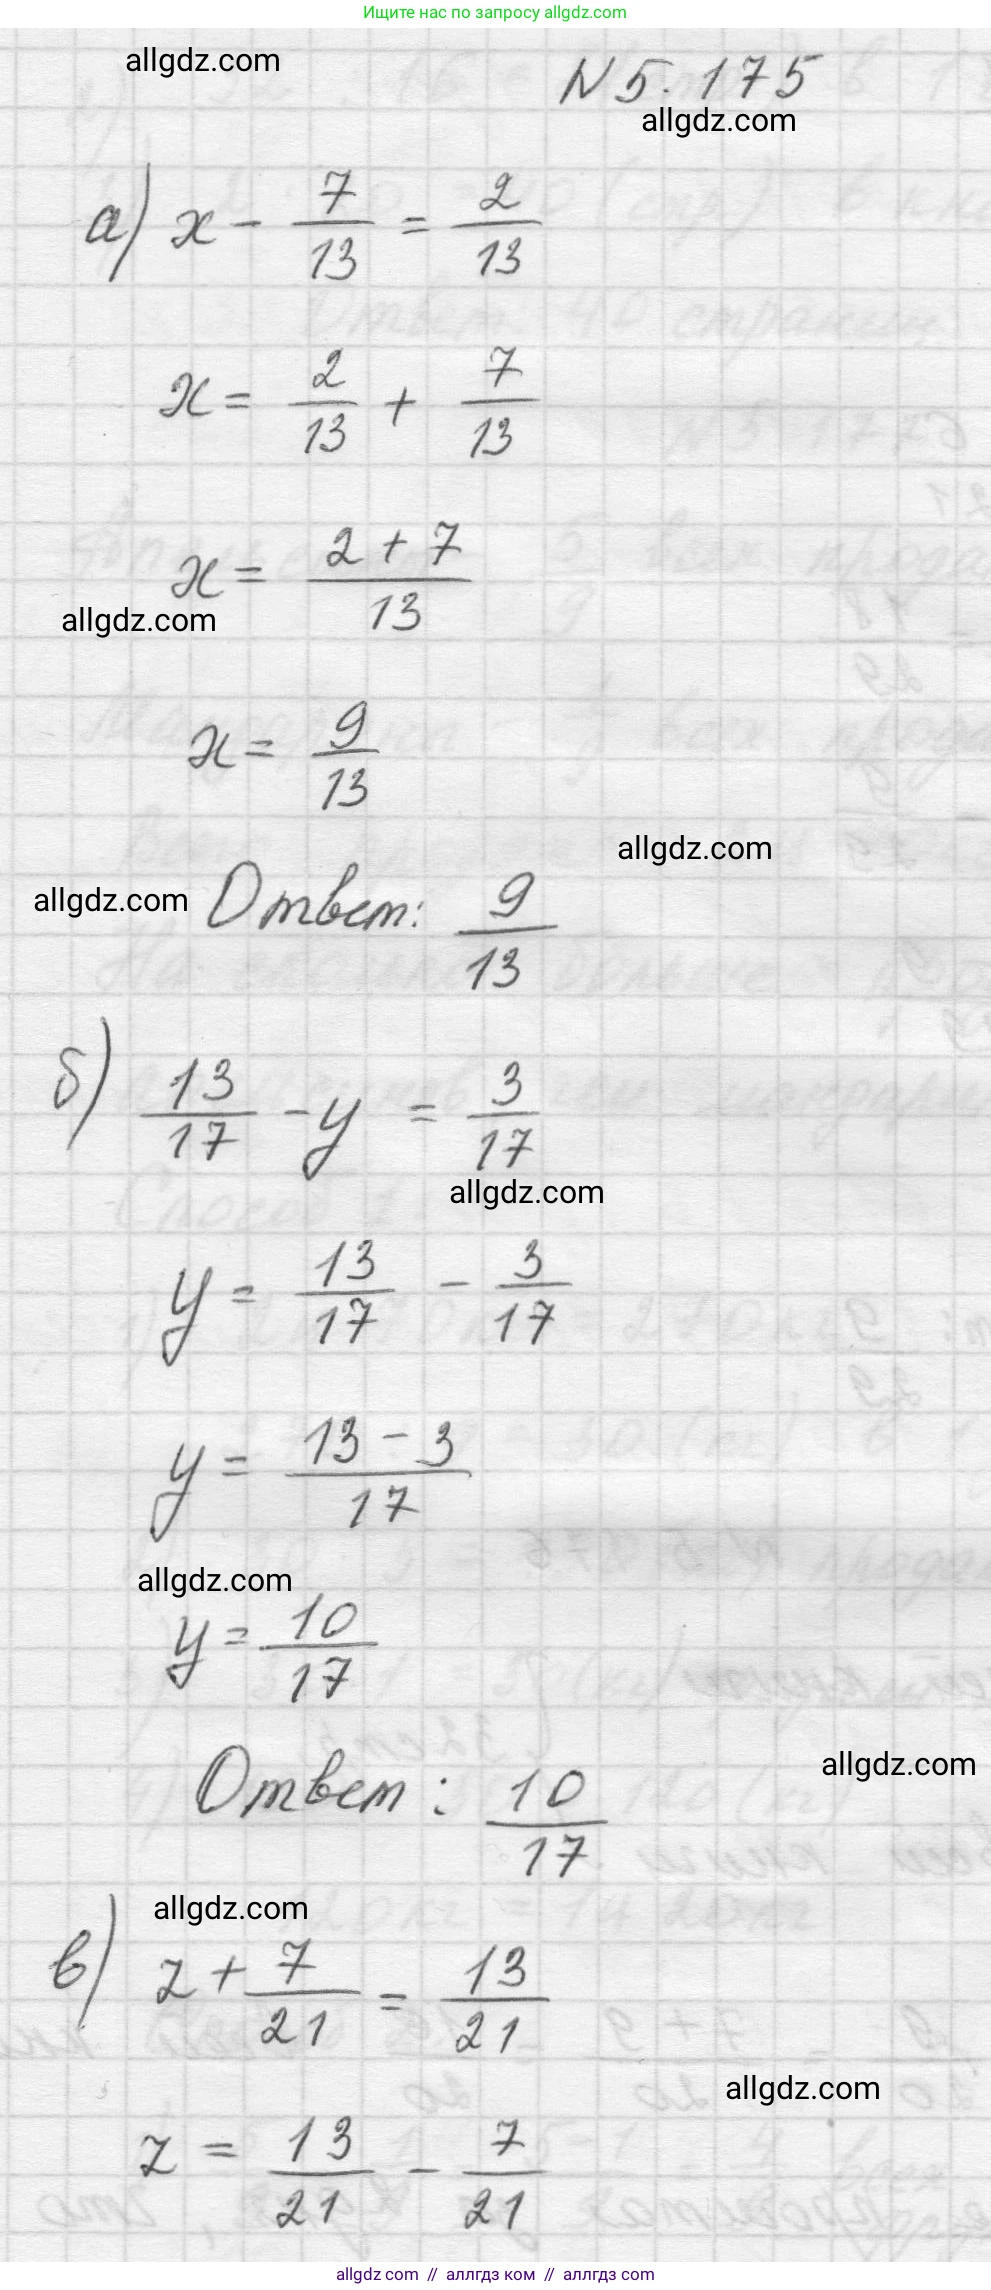 Ищите нас по запросу allgdz.com
allgdz.com
N 5.175
allgdz.com
а) x - 7/13 = 2/13
x = 2/13 + 7/13
x = (2 + 7)/13
allgdz.com
x = 9/13
allgdz.com
allgdz.com Ответ: 9/13
б) 13/17 - y = 3/17
allgdz.com
y = 13/17 - 3/17
y = (13 - 3)/17
allgdz.com
y = 10/17
allgdz.com
Ответ: 10/17
allgdz.com
в) z + 7/21 = 13/21
allgdz.com
z = 13/21 - 7/21
allgdz.com // аллгдз ком // аллгдз.com